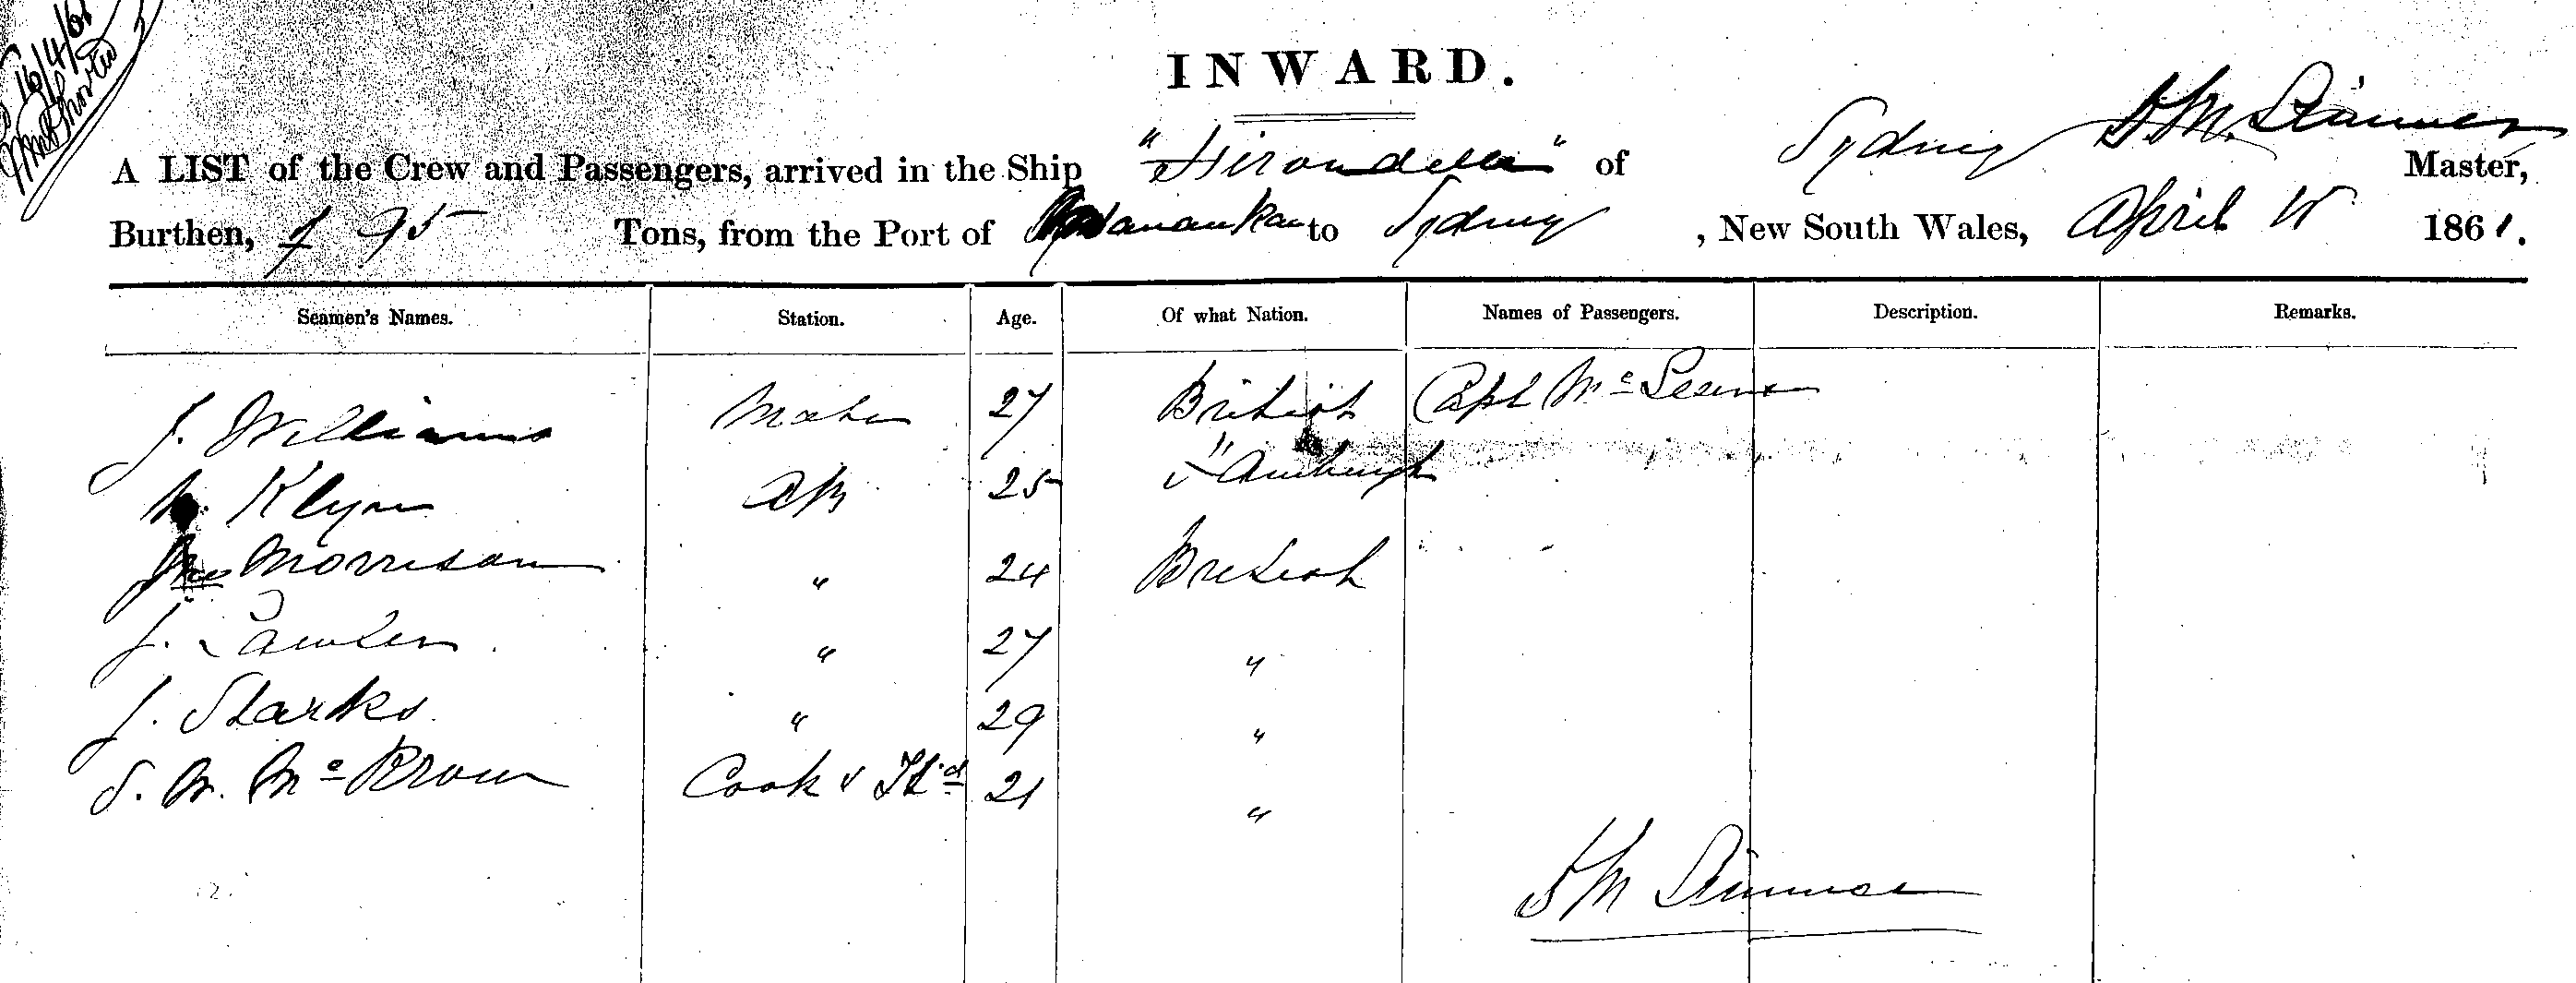 16/4/61
INWARD.
A LIST of the Crew and Passengers, arrived in the Ship "Hirondelle" of Sydney Master,
Burthen, of 95 Tons, from the Port of to Sydney, New South Wales, April 1861.
Seamen's Names. Station. Age. Of what Nation. Names of Passengers. Description. Remarks.
J. Williams Mate 27 British Capt Mc
Klyn AB 25 "
Morrison " 24 British
J. " 27 "
J. Starks " 29 "
S. W. McBrown Cook & Std 21 "